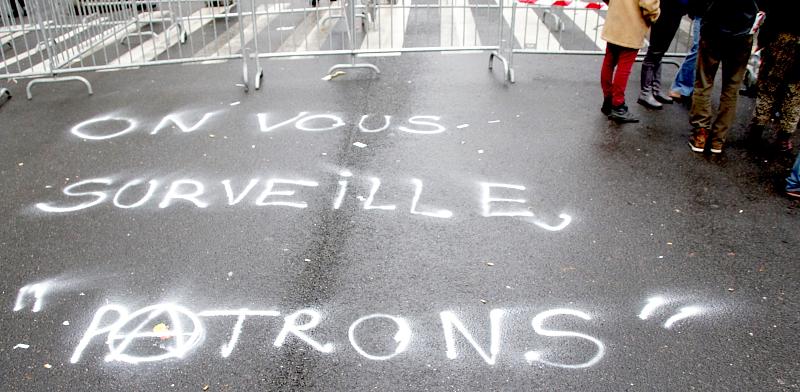 ON VOUS
SURVEILLE,
"PATRONS"